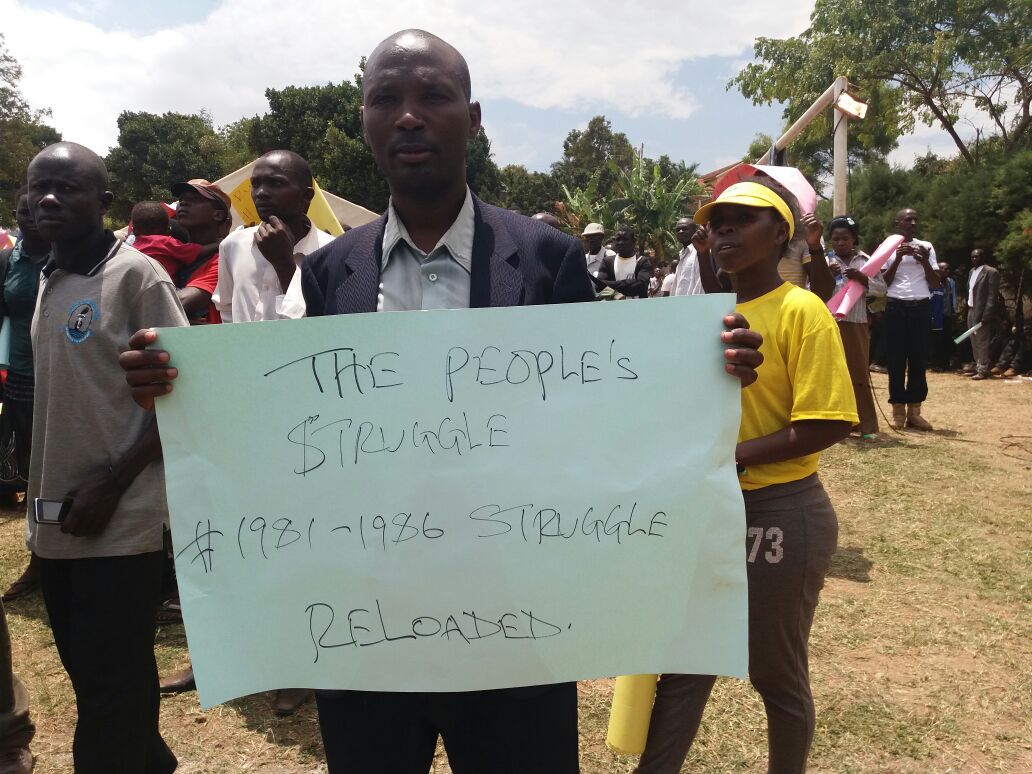 THE PEOPLE'S
STRUGGLE
#1981-1986 STRUGGLE
RELOADED.
73